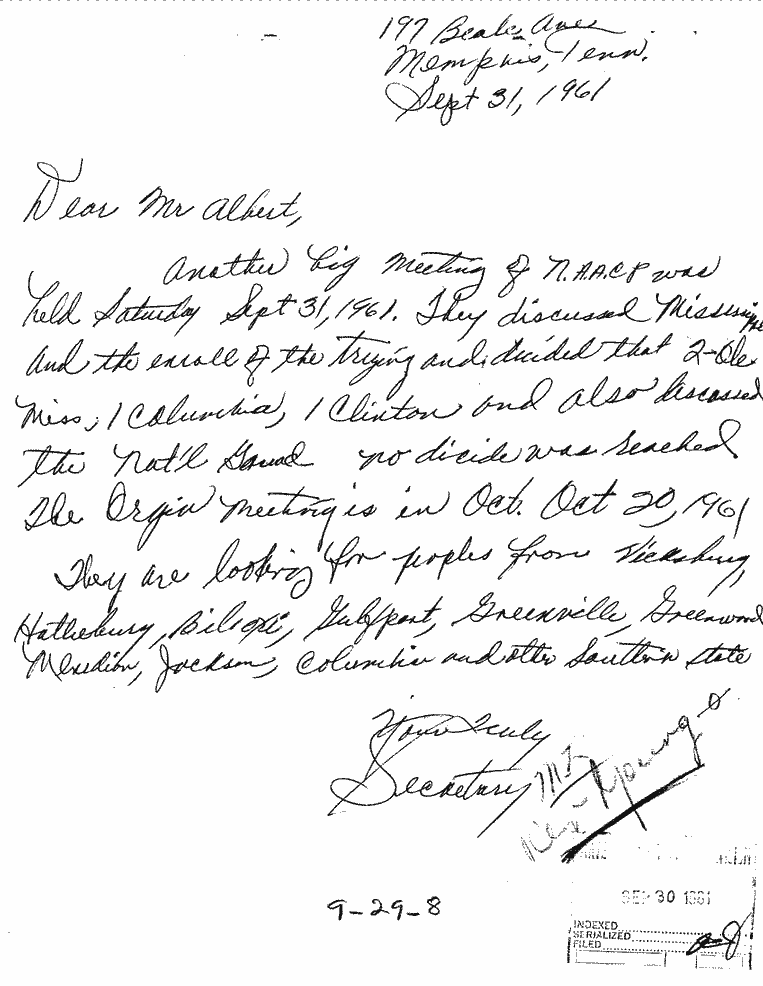 197 Beale Ave
Memphis, Tenn.
Sept 31, 1961
Dear Mr Albert,
Another big meeting of N.A.A.C.P was
held Saturday Sept 31, 1961. They discussed Mississippi
and the enroll of the trying and dicided that 2-Ole
Miss, 1 Columbia, 1 Clinton and also discussed
the Nat'l Guard no dicide was reached
The Orgin meeting is in Oct. Oct 20, 1961
They are looking for peoples from Vicksburg,
Hattiesburg, Biloxi, Gulfport, Greenville, Greenwood
Meridian, Jackson, Columbia and other Southern state
Yours Truly
Secretary
Young
9-29-8
SEP 30 1961
INDEXED
SERIALIZED
FILED